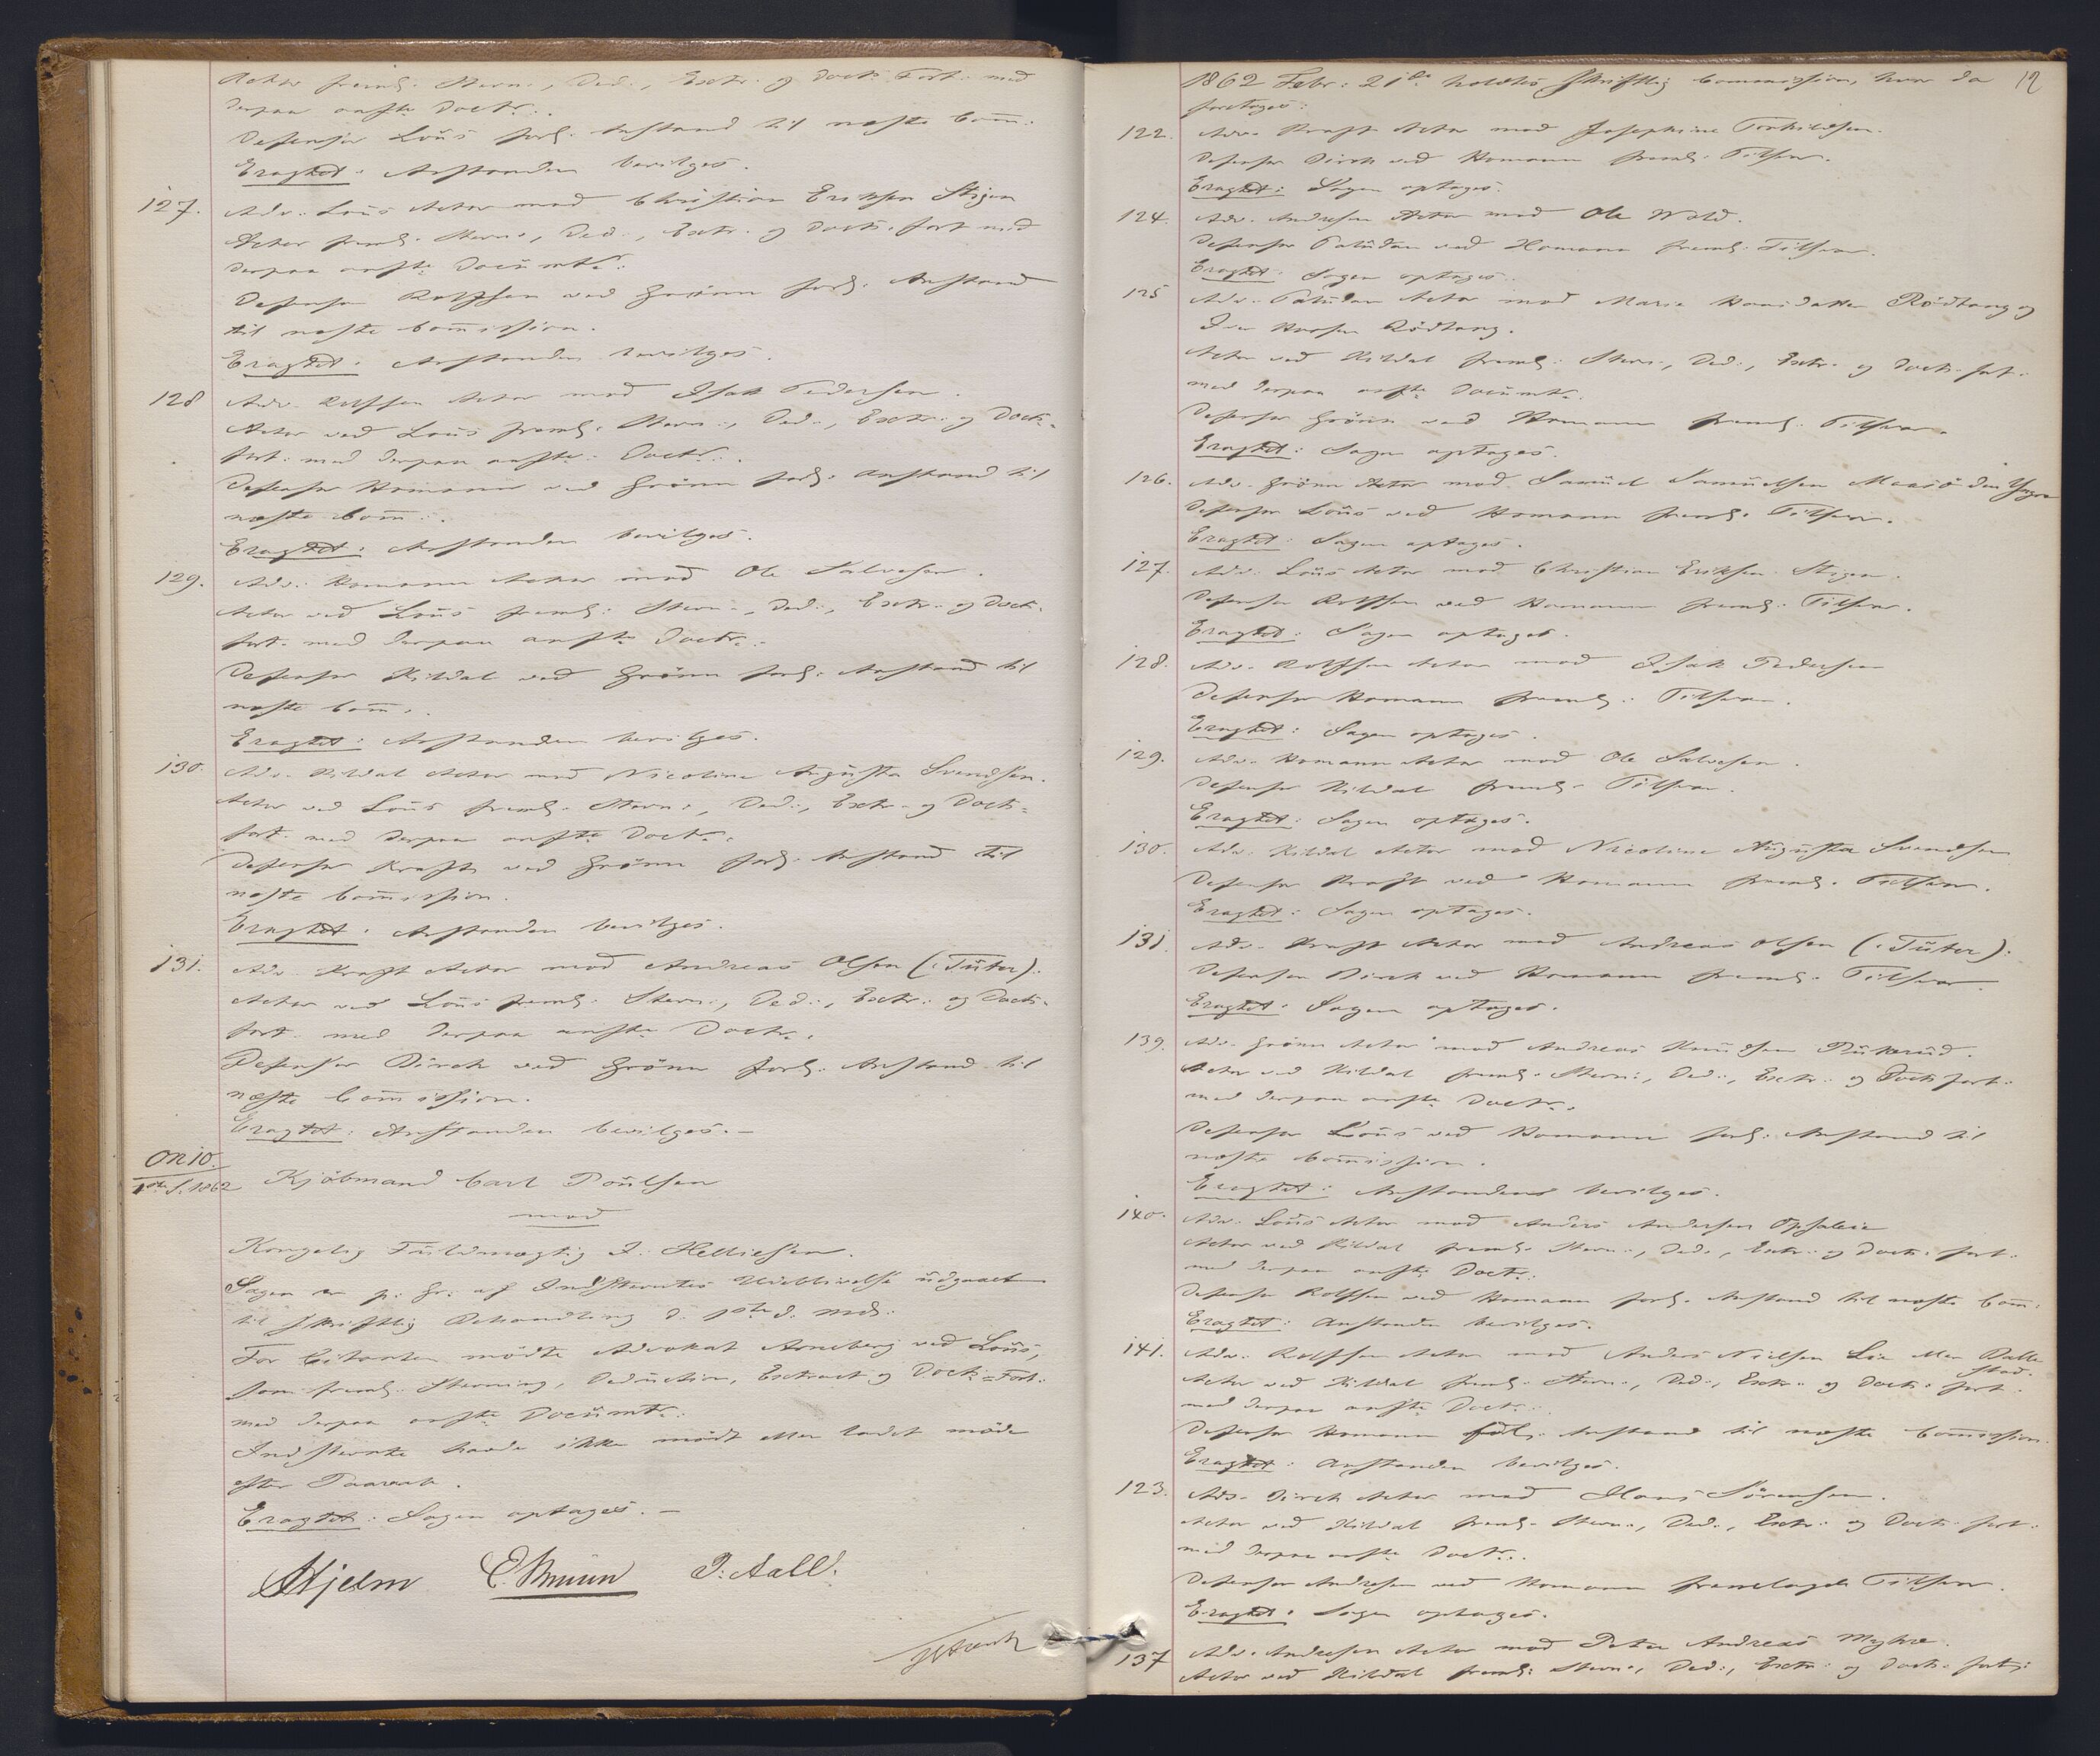 Actor freml: Stevn:, Ded:, Extr: og Doct: Fort: med
derpaa anfte Doctr:.
Defensor Loüs forl: Anstand til næste Comm:
Eragtet: Anstanden bevilges.
127. Adv: Loüs Actor mod Christian Eriksen Stigen
Actor freml: Stevn:, Ded:, Extr: og Doct: fort med
derpaa anfte Documtr:
Defensor Rolfsen ved Grönn forl: Anstand
til næste Commission.
Eragtet: Anstanden bevilges.
128 Adv: Rolfsen Actor mod Isak Pedersen.
Actor ved Loüs freml: Stevn:, Ded:, Extr: og Doct:
fort: med derpaa anfte: Doctr:.
Defensor Homann ved Grönn forl: Anstand til
næste Comm:.
Eragtet: Anstanden bevilges.
129. Adv: Homann Actor mod Ole Salvesen.
Actor ved Loüs freml: Stevn:, Ded:, Extr: og Doct:
fort: med derpaa anfte Doctr:.
Defensor Kildal ved Grönn forl: Anstand til
næste Comm:.
Eragtet: Anstanden bevilges.
130. Adv: Kildal Actor mod Nicoline Augusta Svendsen.
Actor ved Loüs freml: Stevn:, Ded:, Extr: og Doct:
fort: med derpaa anfte Doctr:.
Defensor Kraft ved Grönn forl: Anstand til
næste Commission.
Eragtet: Anstanden bevilges.
131. Adv: Kraft Actor mod Andreas Olsen (:Tüter).
Actor ved Loüs freml: Stevn:, Ded:, Extr: og Doct:
fort: med derpaa anfte Doctr:.
Defensor Dirck ved Grönn forl: Anstand til
næste Commission.
Eragtet: Anstanden bevilges. –
No 10.
1ste S. 1862 Kjöbmand Carl Poülsen
mod
Kongelig Füldmægtig J: Helliesen.
Sagen er p: Gr: af Indstevntes Udeblivelse üdgaaet
til skriftlig Behandling d. 1ste d. Mds:
For Citanten mödte Advokat Arneberg ved Loüs,
som freml: Stevning, Deduction, Extract og Doct: Fort:
med derpaa anfte Documtr:
Indstevnte havde ikke mödt eller ladet möde
efter Paaraab.
Eragtet: Sagen optages. –
Hjelm C. Bruun J: Aall.
1862 Febr: 21de holdtes skriftlig Commission, hvor da 12
foretages:
122. Adv: Kraft Actor mod Josephine Torkildsen.
Defensor Dirck ved Homann freml: Tilsvar.
Eragtet: Sagen optages.
124. Adv: Andresen Actor mod Ole Wold.
Defensor Palüdan ved Homann freml: Tilsvar.
Eragtet: Sagen optages.
125 Adv: Palüdan Actor mod Marie Hansdatter Rödtang og
Iver Hansen Rödtang.
Actor ved Kildal freml: Stevn:, Ded:, Extr: og Doct: fort:
med derpaa anfte Documtr:
Defensor Grönn ved Homann freml: Tilsvar.
Eragtet: Sagen optages.
126. Adv: Grönn Actor mod Samüel Samüelsen Maasö den Yngre
Defensor Loüs ved Homann freml: Tilsvar.
Eragtet: Sagen optages.
127. Adv: Loüs Actor mod Christian Eriksen Stigen.
Defensor Rolfsen ved Homann freml: Tilsvar.
Eragtet: Sagen optaget.
128. Adv: Rolfsen Actor mod Isak Pedersen
Defensor Homann freml: Tilsvar.
Eragtet: Sagen optages.
129. Adv: Homann Actor mod Ole Salvesen.
Defensor Kildal freml: Tilsvar.
Eragtet: Sagen optages.
130. Adv: Kildal Actor mod Nicoline Aügüsta Svendsen
Defensor Kraft ved Homann freml: Tilsvar.
Eragtet: Sagen optages.
131. Adv: Kraft Actor mod Andreas Olsen (:Tüter).
Defensor Dirck ved Homann freml: Tilsvar.
Eragtet: Sagen optages.
139. Adv: Grönn Actor mod Andreas Knüdsen
Actor ved Kildal freml: Stevn:, Ded:, Extr: og Doct: fort:
med derpaa anfte Doctr:.
Defensor Loüs ved Homann forl: Anstand til
næste Commission.
Eragtet: Anstanden bevilges.
140. Adv: Loüs Actor mod Anders Andersen Opsaleie
Actor ved Kildal freml: Stevn:, Ded:, Extr: og Doct: fort:
med derpaa anfte Doctr:
Defensor Rolfsen ved Homann forl: Anstand til næste Comm:
Eragtet: Anstanden bevilges.
141. Adv: Rolfsen Actor mod Anders Nielsen Lie eller Dalle
stad.
Actor ved Kildal freml: Stevn:, Ded:, Extr: og Doct: fort:
med derpaa anfte Doctr:.
Defensor Homann forl: Anstand til næste Commission.
Eragtet: Anstanden bevilges.
123. Adv: Dirck Actor mod Hans Sörensen.
Actor ved Kildal freml: Stevn:, Ded:, Extr: og Doct: fort:
med derpaa anfte Doctr:.
Defensor Andresen ved Homann fremlagde Tilsvar.
Eragtet: Sagen optages.
137 Adv: Andresen Actor mod Peter Andreas Myhre.
Actor ved Kildal freml: Stevn:, Ded:, Extr: og Doct: fort: